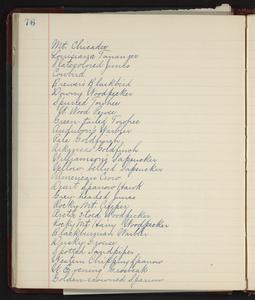 76
Mt. Chicadee
Louisiana Tananger
Slatecolored Junco
Cowbird
Brewers Blackbird
Downy Woodpecker
Spurred Towhee
Wt Wood Pewee
Green-tailed Towhee
Audubon's Warbler
Pale Goldfinch
Arkansas Goldfinch
Williamson's Sapsucker
Yellow-bellyd Sapsucker
American Crow
Desert Sparrow Hawk
Gray headed Junco
Rocky Mt. Creeper
Arctic 3 toed Woodpecker
Rocky Mt Hairy Woodpecker
Blackburnian Warbler
Dusky Grouse
Spotted Sandpiper
Western Chipping Sparrow
W. Evening Grosbeak
Golden-crowned Sparrow